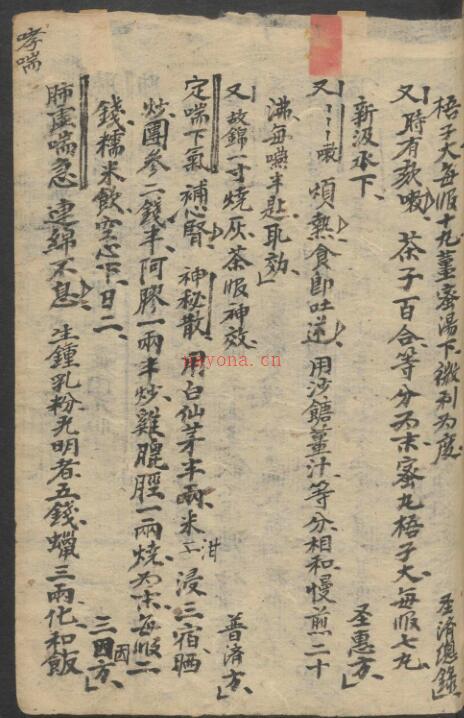 哮喘
梧子大每服十丸薑蜜湯下微利为度 圣済總錄
又時有欬嗽 茶子百合等分为末蜜丸梧子大每服七丸
新汲水下 圣惠方
又 嗽 煩熱食即吐逆 用沙餹薑汁等分相和慢煎二十
沸每嚥半匙取効
又 故錦一寸燒灰茶服神效 普済方
定喘下氣 補心腎 神秘散 用白仙茅半兩米泔浸三宿晒
炒團參二錢半阿膠一兩半炒雞膍胵一兩燒为末每服二
錢糯米飲空心下日二 三因方
肺虛喘急 連綿不息 生鍾乳粉光明者五錢蠟三兩化和飯
nayona.cn